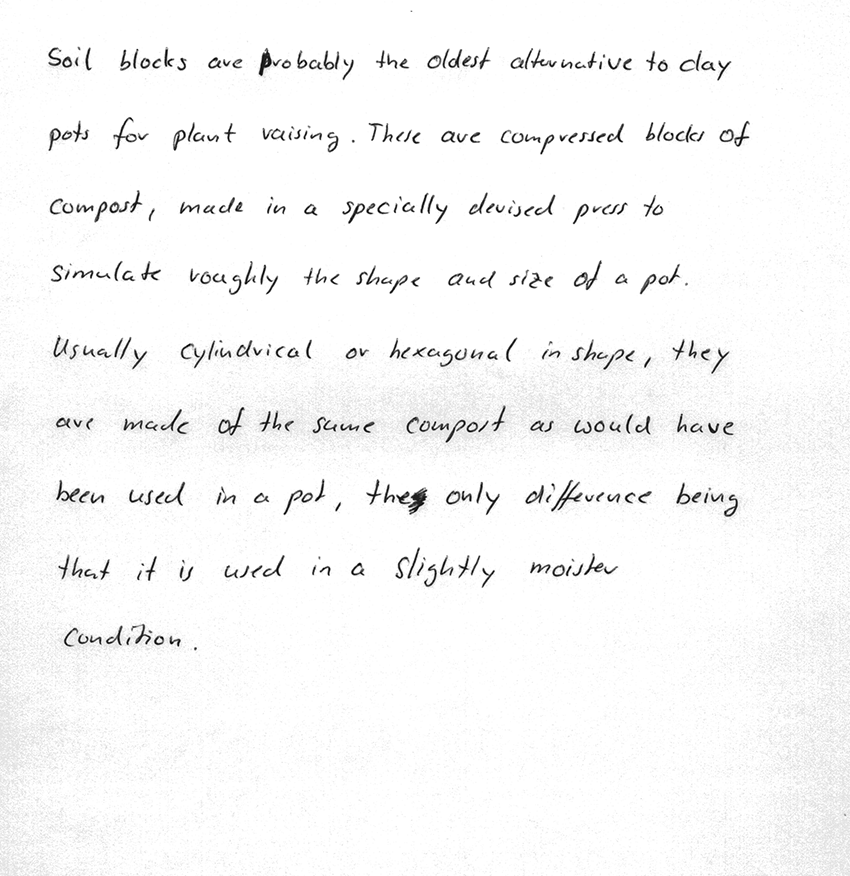 Soil blocks are probably the oldest alternative to clay
pots for plant raising. These are compressed blocks of
compost, made in a specially devised press to
simulate roughly the shape and size of a pot.
Usually cylindrical or hexagonal in shape, they
are made of the same compost as would have
been used in a pot, the only difference being
that it is used in a slightly moister
condition.